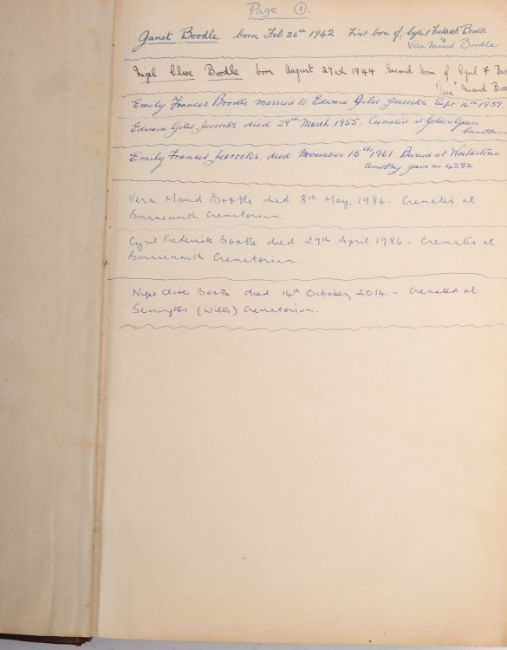 Page 1.
Janet Boodle born Feb 26th 1942 First born of Cyril Frederick Boodle
& Vera Maud Boodle
Nigel Clive Boodle born August 27th 1944 Second born of Cyril F Boo
"Vera" Maud Boo
Emily Frances Boodle married to Edward Giles Jeacocks Sept 16th
Edward Giles Jeacocks died 29th March 1955. Cremation at Golders Green
Crematorium
Emily Frances Jeacocks died November 15th 1961. Buried at
Cemetery grave no 4282
Vera Maud Boodle died 8th May, 1984 - Cremated at
Bournemouth Crematorium.
Cyril Frederick Boodle died 29th April 1986 - Cremated at
Bournemouth Crematorium.
Nigel Clive Boodle died 14th October 2014. - Cremated at
Semington (Wilts) Crematorium.